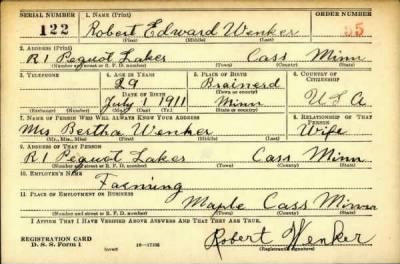 SERIAL NUMBER 1. NAME (Print) ORDER NUMBER
122 Robert Edward Wenker 55
(First) (Middle) (Last)
2. ADDRESS (Print)
R1 Pequot Lakes Cass Minn
(Number and street or R. F. D. number) (Town) (County) (State)
3. TELEPHONE 4. AGE IN YEARS 5. PLACE OF BIRTH 6. COUNTRY OF CITIZENSHIP
29 Brainerd
DATE OF BIRTH (Town or county)
July 1 1911 Minn U S A
(Exchange) (Number) (Mo.) (Day) (Yr.) (State or country)
7. NAME OF PERSON WHO WILL ALWAYS KNOW YOUR ADDRESS 8. RELATIONSHIP OF THAT PERSON
Mrs Bertha Wenker Wife
(Mr., Mrs., Miss) (First) (Middle) (Last)
9. ADDRESS OF THAT PERSON
R1 Pequot Lakes Cass Minn
(Number and street or R. F. D. number) (Town) (County) (State)
10. EMPLOYER'S NAME
Farming
11. PLACE OF EMPLOYMENT OR BUSINESS
Maple Cass Minn
(Number and street or R. F. D. number) (Town) (County) (State)
I AFFIRM THAT I HAVE VERIFIED ABOVE ANSWERS AND THAT THEY ARE TRUE.
REGISTRATION CARD
D. S. S. Form 1 Robert Wenker
(Registrant's signature)